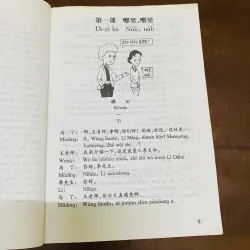 第一课 哪里，哪里
Dì-yī kè Nǎli, nǎli
课文
Kèwén
一
Yī
马丁：啊，王老师，李明，你们好！欢迎，欢迎。这位是……
Mǎdīng: Wáng lǎoshī, Lǐ Míng, nǐmen hǎo! Huānyíng,
huānyíng. Zhè wèi shì…?
王老师：我来介绍一下，这是我爱人李大海。
Wáng: Wǒ lái jièshào yíxià, zhè shì wǒ àiren Lǐ Dàhǎi.
马丁：你好，李先生。
Mǎdīng: Nǐhǎo, Lǐ xiānsheng.
李先生：你好。
Lǐ: Nǐhǎo.
马丁：王老师，你今天真漂亮啊。
Mǎdīng: Wáng lǎoshī, nǐ jīntiān zhēn piàoliang a.